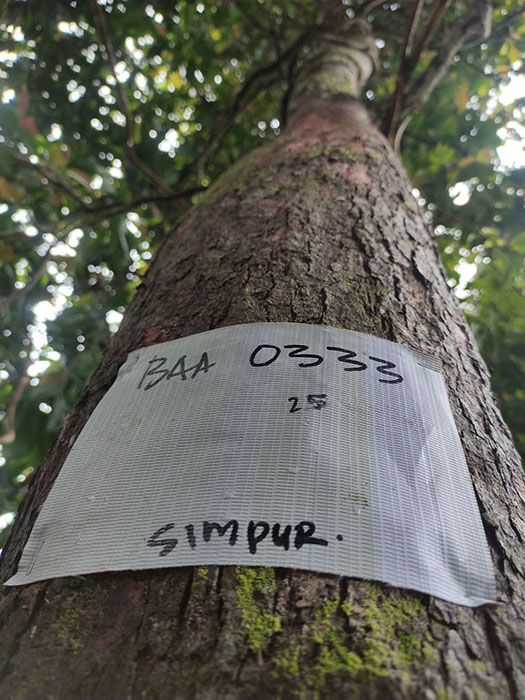 BAA 0333
25
SIMPUR.